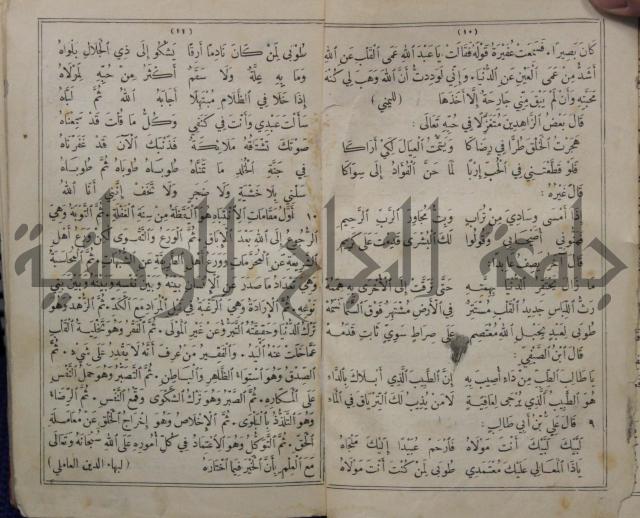 (١٠)
كَانَ بَصِيرًا، فَسَمِعَتْ عُفَيْرَةُ قَوْلَهُ فَقَالَتْ يَا عَبْدَ اللهِ عَمَى الْقَلْبِ عَنِ اللهِ
أَشَدُّ مِنْ عَمَى الْعَيْنِ عَنِ الدُّنْيَا، وَإِنِّي لَوَدِدْتُ أَنَّ اللهَ وَهَبَ لِي كُنْهَ
مَحَبَّتِهِ وَأَنْ لَمْ يَبْقَ مِنِّي جَارِحَةٌ إِلَّا أَخَذَهَا
قَالَ بَعْضُ الزَّاهِدِينَ مُتَغَزِّلًا فِي حُبِّهِ تَعَالَى:
هَجَرْتُ الْخَلْقَ طُرًّا فِي رِضَاكَا وَيَتَّمْتُ الْعِيَالَ لِكَيْ أَرَاكَا
فَلَوْ قَطَّعْتَنِي فِي الْحُبِّ إِرْبًا لَمَا حَنَّ الْفُؤَادُ إِلَى سِوَاكَا
قَالَ غَيْرُهُ:
إِذَا أَمْسَى وِسَادِي مِنْ تُرَابٍ وَبِتُّ مُجَاوِرَ الرَّبِّ الرَّحِيمِ
أَصْحَابِي وَقُولُوا لَكَ الْبُشْرَى قَدِمْتَ عَلَى كَرِيمِ
قَالَ
الدُّنْيَا بِهِمَّتِهِ حَتَّى تَرَقَّتْ إِلَى الْأُخْرَى بِهِ هِمَمُهُ
رَثُّ اللِّبَاسِ جَدِيدُ الْقَلْبِ مُسْتَتِرٌ فِي الْأَرْضِ مُشْتَهِرٌ فَوْقَ السَّمَا
طُوبَى لِعَبْدٍ بِحَبْلِ اللهِ مُعْتَصِمٍ عَلَى صِرَاطٍ سَوِيٍّ ثَابِتٍ قَدَمُهْ
قَالَ ابْنُ الصَّيْفِيِّ:
يَا طَالِبَ الطِّبِّ مِنْ دَاءٍ أُصِيبَ بِهِ إِنَّ الطَّبِيبَ الَّذِي أَبْلَاكَ بِالدَّاءِ
هُوَ الطَّبِيبُ الَّذِي يُرْجَى لِعَافِيَةٍ لَا مَنْ يُذِيبُ لَكَ التِّرْيَاقَ فِي الْمَاءِ
٩ قَالَ عَلِيُّ بْنُ أَبِي طَالِبٍ:
لَبَّيْكَ لَبَّيْكَ أَنْتَ مَوْلَاهُ فَارْحَمْ عُبَيْدًا إِلَيْكَ مَنْجَاهُ
يَاذَا الْمَعَالِي عَلَيْكَ مُعْتَمَدِي طُوبَى لِمَنْ كُنْتَ أَنْتَ مَوْلَاهُ
(١١)
طُوبَى لِمَنْ كَانَ نَادِمًا أَرِقًا يَشْكُو إِلَى ذِي الْجَلَالِ بَلْوَاهُ
وَمَا بِهِ عِلَّةٌ وَلَا سَقَمٌ أَكْثَرُ مِنْ حُبِّهِ لِمَوْلَاهُ
إِذَا خَلَا فِي الظَّلَامِ مُبْتَهِلًا أَجَابَهُ اللهُ ثُمَّ لَبَّاهُ
سَأَلْتَ عَبْدِي وَأَنْتَ فِي كَنَفِي وَكُلُّ مَا قُلْتَ قَدْ سَمِعْنَاهُ
صَوْتُكَ تَشْتَاقُهُ مَلَائِكَةٌ فَذَنْبُكَ الْآنَ قَدْ غَفَرْنَاهُ
فِي جَنَّةِ الْخُلْدِ مَا تَمَنَّاهُ طُوبَاهُ طُوبَاهُ ثُمَّ طُوبَاهُ
سَلْنِي بِلَا خَشْيَةٍ وَلَا ضَجَرٍ وَلَا تَخَفْ إِنَّنِي أَنَا اللهُ
١٠ أَوَّلُ مَقَامَاتِ الْاِنْتِبَاهِ هُوَ الْيَقَظَةُ مِنْ سِنَةِ الْغَفْلَةِ. ثُمَّ التَّوْبَةُ وَهِيَ
الرُّجُوعُ إِلَى اللهِ بَعْدَ الْإِبَاقِ. ثُمَّ الْوَرَعُ وَالتَّقْوَى لَكِنْ وَرَعُ أَهْلِ
عَنِ الْمُحَرَّمَاتِ وَوَرَعُ أَهْلِ عَنِ الشُّبُهَاتِ. ثُمَّ الْمُحَاسَبَةُ
وَهِيَ تَعْدَادُ مَا صَدَرَ عَنِ الْإِنْسَانِ بَيْنَهُ وَبَيْنَ نَفْسِهِ وَبَيْنَهُ وَبَيْنَ بَنِي
نَوْعِهِ. ثُمَّ الْإِرَادَةُ وَهِيَ الرَّغْبَةُ فِي نَيْلِ الْمُرَادِ مَعَ الْكَدِّ. ثُمَّ الزُّهْدُ وَهُوَ
تَرْكُ الدُّنْيَا وَحَقِيقَتُهُ التَّبَرُّؤُ عَنْ غَيْرِ الْمَوْلَى. ثُمَّ الْفَقْرُ وَهُوَ تَخْلِيَةُ الْقَلْبِ
عَمَّا خَلَتْ عَنْهُ الْيَدُ. وَالْفَقِيرُ مَنْ عَرَفَ أَنَّهُ لَا يَقْدِرُ عَلَى شَيْءٍ. ثُمَّ
الصِّدْقُ وَهُوَ اسْتِوَاءُ الظَّاهِرِ وَالْبَاطِنِ. ثُمَّ التَّصَبُّرُ وَهُوَ حَمْلُ النَّفْسِ
عَلَى الْمَكَارِهِ. ثُمَّ الصَّبْرُ وَهُوَ تَرْكُ الشَّكْوَى وَقَمْعُ النَّفْسِ. ثُمَّ الرِّضَاءُ
وَهُوَ التَّلَذُّذُ بِالْبَلْوَى. ثُمَّ الْإِخْلَاصُ وَهُوَ إِخْرَاجُ الْخَلْقِ عَنْ مُعَامَلَةِ
الْحَقِّ. ثُمَّ التَّوَكُّلُ وَهُوَ الْاِعْتِمَادُ فِي كُلِّ أُمُورِهِ عَلَى اللهِ سُبْحَانَهُ وَتَعَالَى
مَعَ الْعِلْمِ بِأَنَّ الْخَيْرَ فِيمَا اخْتَارَهُ (لبهاء الدين العاملي)
جامعة النجاح الوطنية